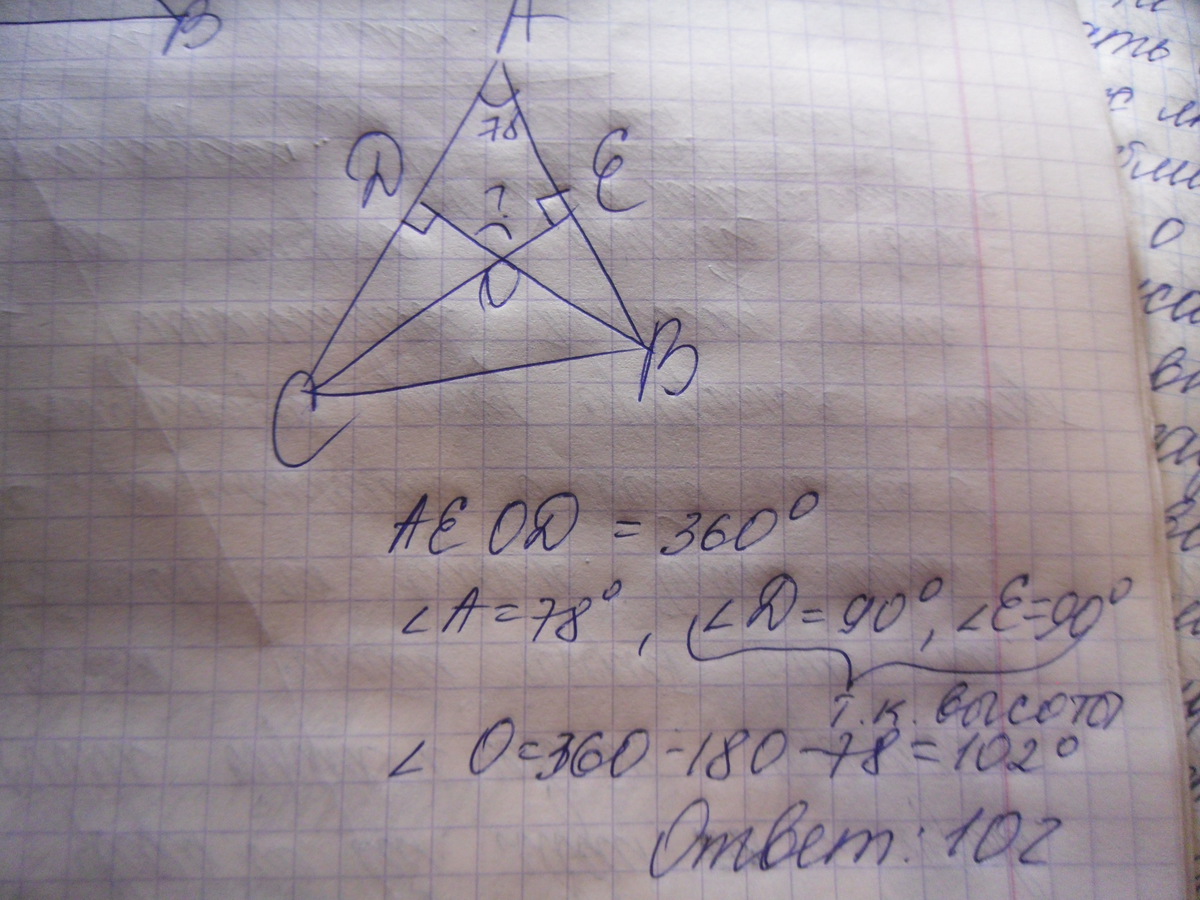 B
A
78
D
E
?
O
B
C
AEOD = 360°
∠A = 78°, ∠D = 90°, ∠E = 90°
т.к. высоты
∠ O = 360 - 180 - 78 = 102°
Ответ: 102